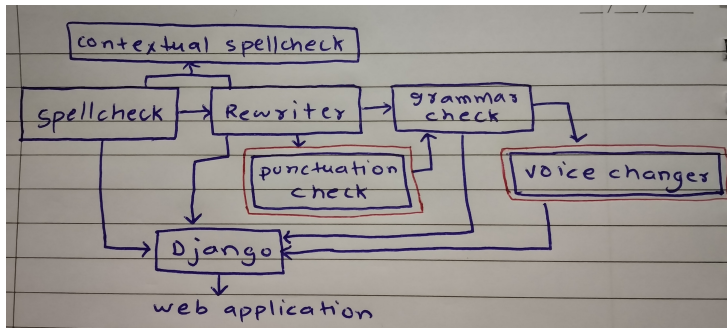 contextual spellcheck
spellcheck
Rewriter
grammar
check
punctuation
check
voice changer
Django
web application